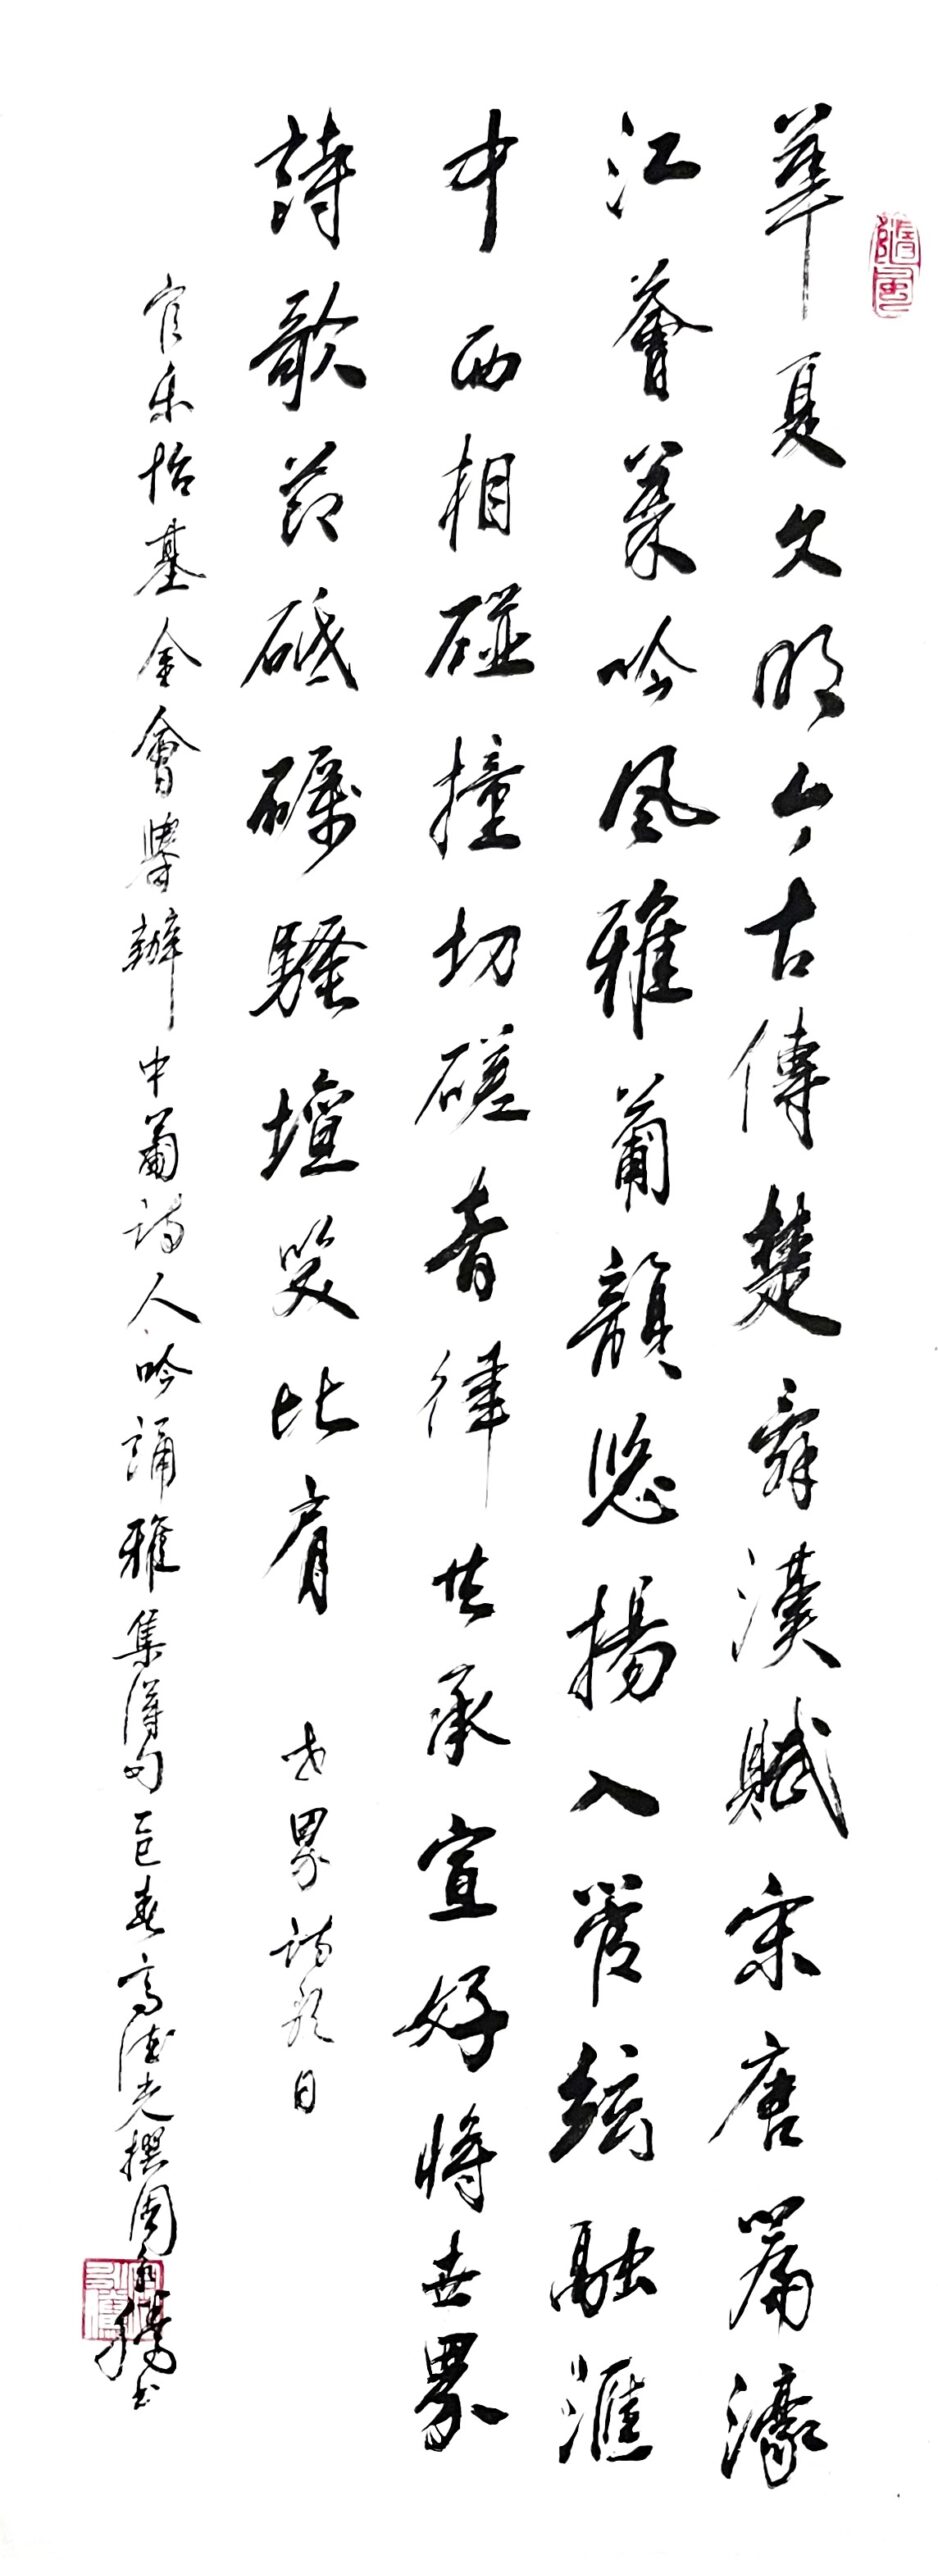 華夏文明今古傳楚辭漢賦宋唐篇濠
江薈萃吟風雅葡韻悠揚入管絃融滙
中西相碰撞切磋音律共承宣好將世界
詩歌節砥礪騷壇笑比肩 世界詩歌日
官樂怡基金會舉辦中葡詩人吟誦雅集得句乙巳春高德光撰周書